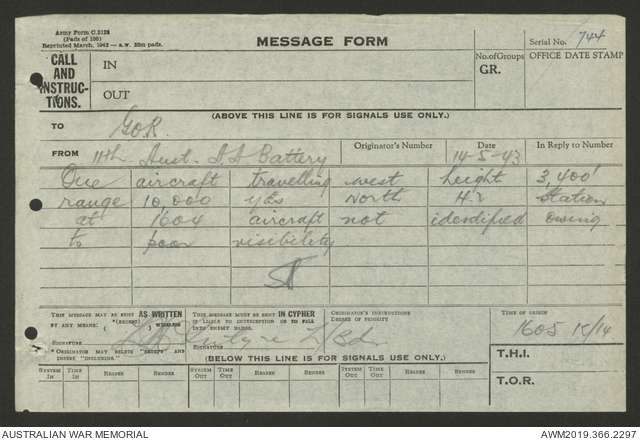 Army Form C.2128
(Pads of 100)
Reprinted March, 1942 — a.w. 55m pads.
MESSAGE FORM
Serial No. 744
CALL AND INSTRUC-TIONS.
IN
OUT
No. of Groups
GR.
OFFICE DATE STAMP
(ABOVE THIS LINE IS FOR SIGNALS USE ONLY.)
TO G.O.R.
FROM 11th Aust. S.L Battery
Originator's Number
Date 14-5-43
In Reply to Number
One aircraft travelling west height 3,400'
range 10,000 yds North H.2 Station
at 1604 aircraft not identified owing
to poor visibility
THIS MESSAGE MAY BE SENT AS WRITTEN
BY ANY MEANS. *(EXCEPT) WIRELESS
SIGNATURE
*ORIGINATOR MAY DELETE "EXCEPT" AND INSERT "INCLUDING."
THIS MESSAGE MUST BE SENT IN CYPHER
IF LIABLE TO INTERCEPTION OR TO FALL INTO ENEMY HANDS.
SIGNATURE
ORIGINATOR'S INSTRUCTIONS
DEGREE OF PRIORITY
TIME OF ORIGIN
1605 K/14
T.H.I.
T.O.R.
(BELOW THIS LINE IS FOR SIGNALS USE ONLY.)
SYSTEM IN TIME IN READER SENDER SYSTEM OUT TIME OUT READER SENDER SYSTEM OUT TIME OUT READER SENDER
AUSTRALIAN WAR MEMORIAL
AWM2019.366.2297